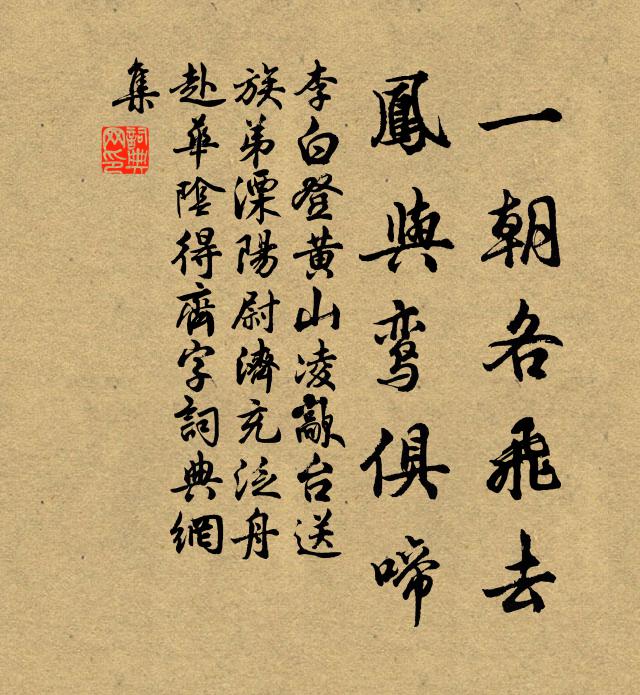 一朝各飛去
鳳與鸞俱啼
李白登黃山凌歊台送
族弟溧陽尉濟充泛舟
赴華陰得齊字詞典網
集
詞典
网印